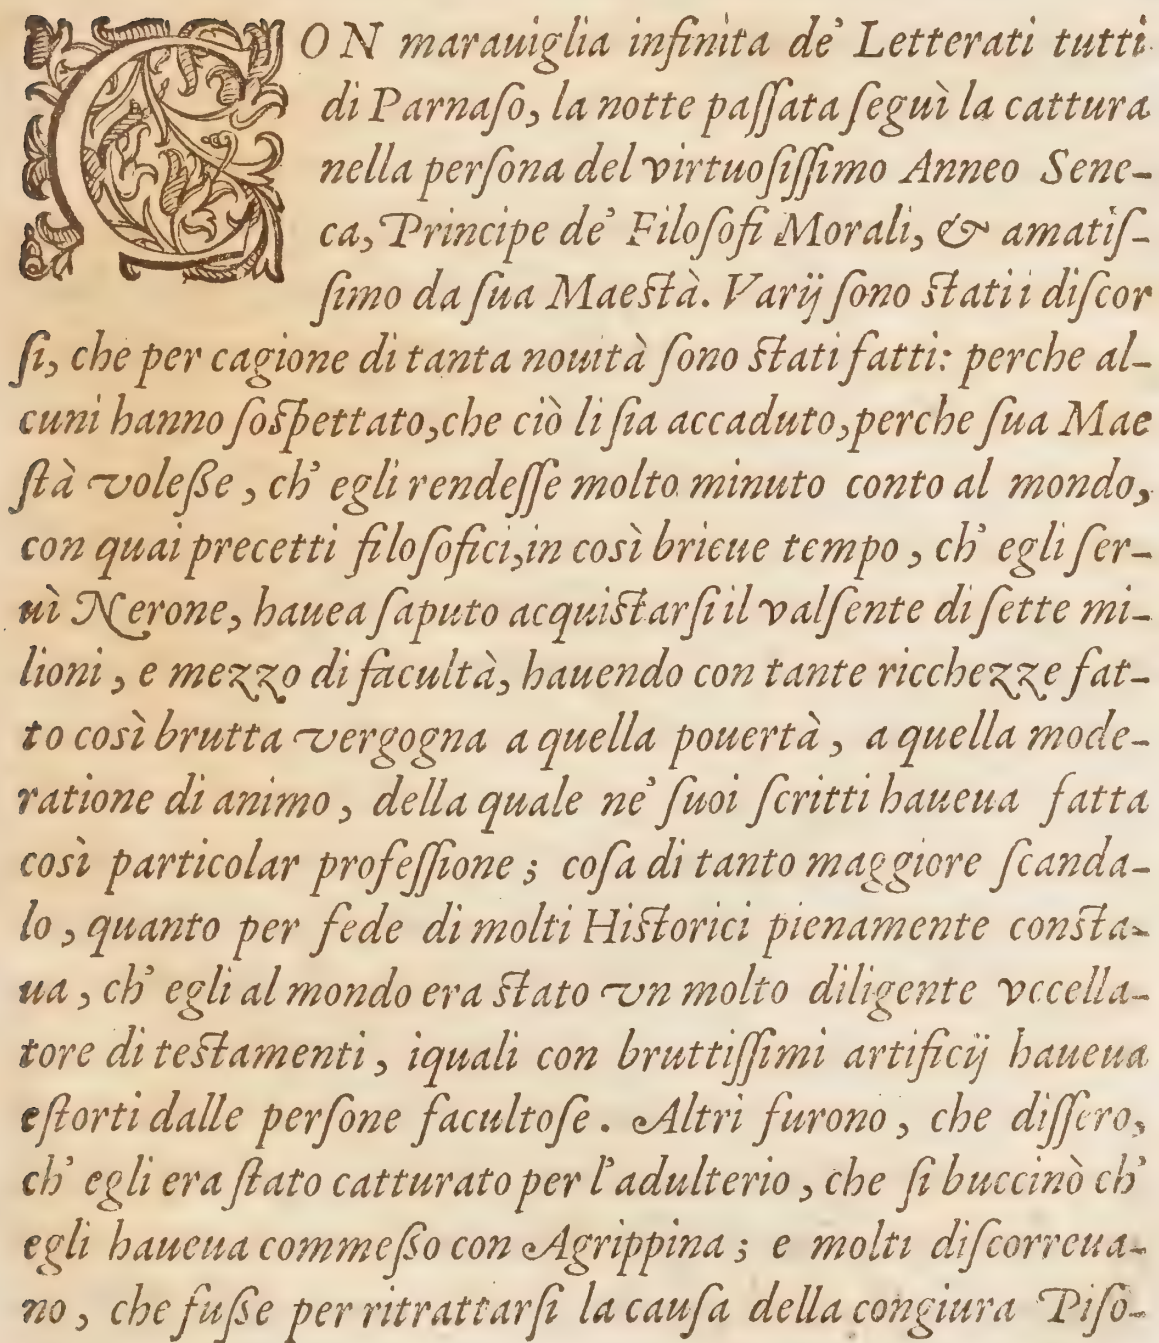 CON marauiglia infinita de' Letterati tutti
di Parnaſo, la notte paſſata ſeguì la cattura
nella perſona del virtuoſiſſimo Anneo Sene-
ca, Principe de' Filoſofi Morali, & amatiſ-
ſimo da ſua Maeſtà. Varij ſono ſtati i diſcor
ſi, che per cagione di tanta nouità ſono ſtati fatti: perche al-
cuni hanno ſoſpettato, che ciò li ſia accaduto, perche ſua Mae
ſtà voleſſe, ch' egli rendeſſe molto minuto conto al mondo,
con quai precetti filoſofici, in così brieue tempo, ch' egli ſer-
uì Nerone, hauea ſaputo acquiſtarſi il valſente di ſette mi-
lioni, e mezzo di facultà, hauendo con tante ricchezze fat-
to così brutta vergogna a quella pouertà, a quella mode-
ratione di animo, della quale ne' ſuoi ſcritti haueua fatta
così particolar profeſſione; coſa di tanto maggiore ſcanda-
lo, quanto per fede di molti Hiſtorici pienamente conſta-
ua, ch' egli al mondo era ſtato vn molto diligente vccella-
tore di teſtamenti, iquali con bruttiſſimi artificij haueua
eſtorti dalle perſone facultoſe. Altri furono, che diſſero,
ch' egli era ſtato catturato per l'adulterio, che ſi buccinò ch'
egli haueua commeſſo con Agrippina; e molti diſcorreua-
no, che fuſſe per ritrattarſi la cauſa della congiura Piſo-